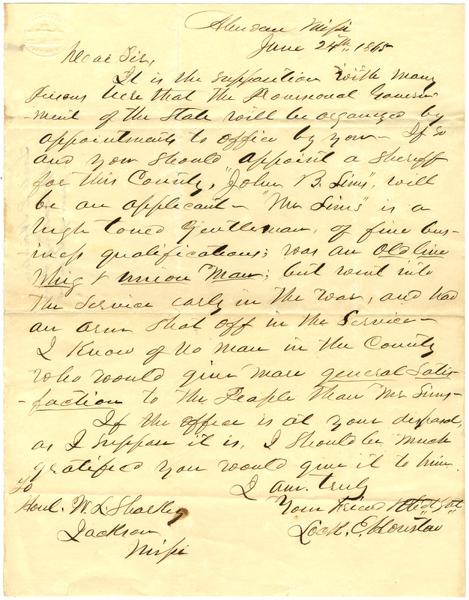 Aberdeen Missi
June 24th, 1865
Dear Sir,
It is the supposition with many
persons here that the Provisional Govern-
ment of the State will be organized by
appointments to office by you - If so
and you should appoint a Sheriff
for this County, "John B. Sims", will
be an applicant - "Mr Sims" is a
high toned Gentleman, of fine bus-
iness qualifications; was an old line
Whig & Union Man; but went into
the Service early in the war, and had
an arm shot off in the Service -
I know of no man in the County
who would give more general satis-
-faction to the People than Mr Sims -
If the office is at your disposal,
as I suppose it is, I should be much
gratified you would give it to him.
I am truly
Your Friend
Lock. E. Houston
To
Honl. W. L. Sharkey
Jackson
Missi